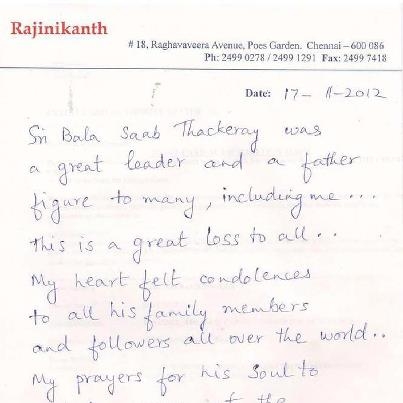 Rajinikanth
# 18, Raghavaveera Avenue, Poes Garden. Chennai – 600 086
Ph: 2499 0278 / 2499 1291 Fax: 2499 7418
Date: 17- 11-2012
Sri Bala Saab Thackeray was
a great leader and a father
figure to many, including me ...
This is a great loss to all ..
My heart felt condolences
to all his family members
and followers all over the world..
My prayers for his Soul to
the